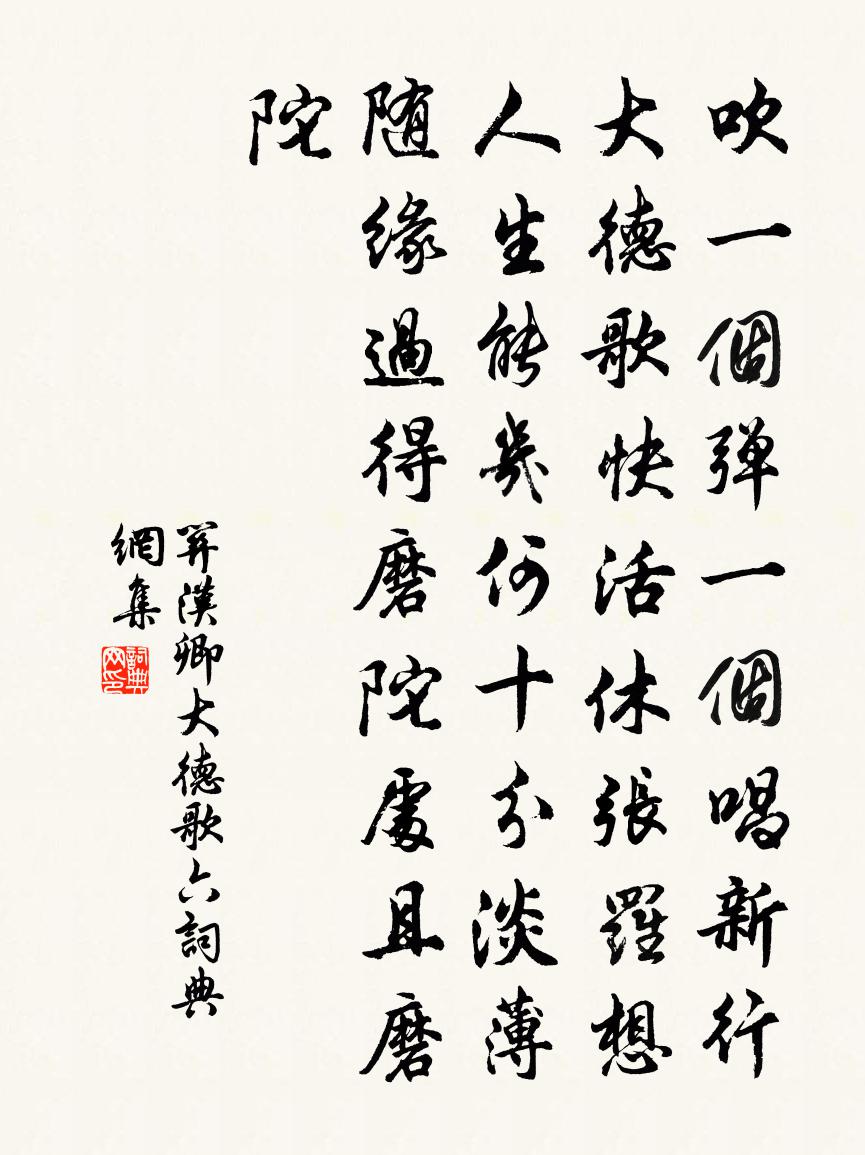 吹一個弹一個唱新行
大德歌快活休張羅想
人生能幾何十分淡薄
随緣過得磨陀處且磨
陀
关漢卿大德歌六詞典
網集
詞典
网印